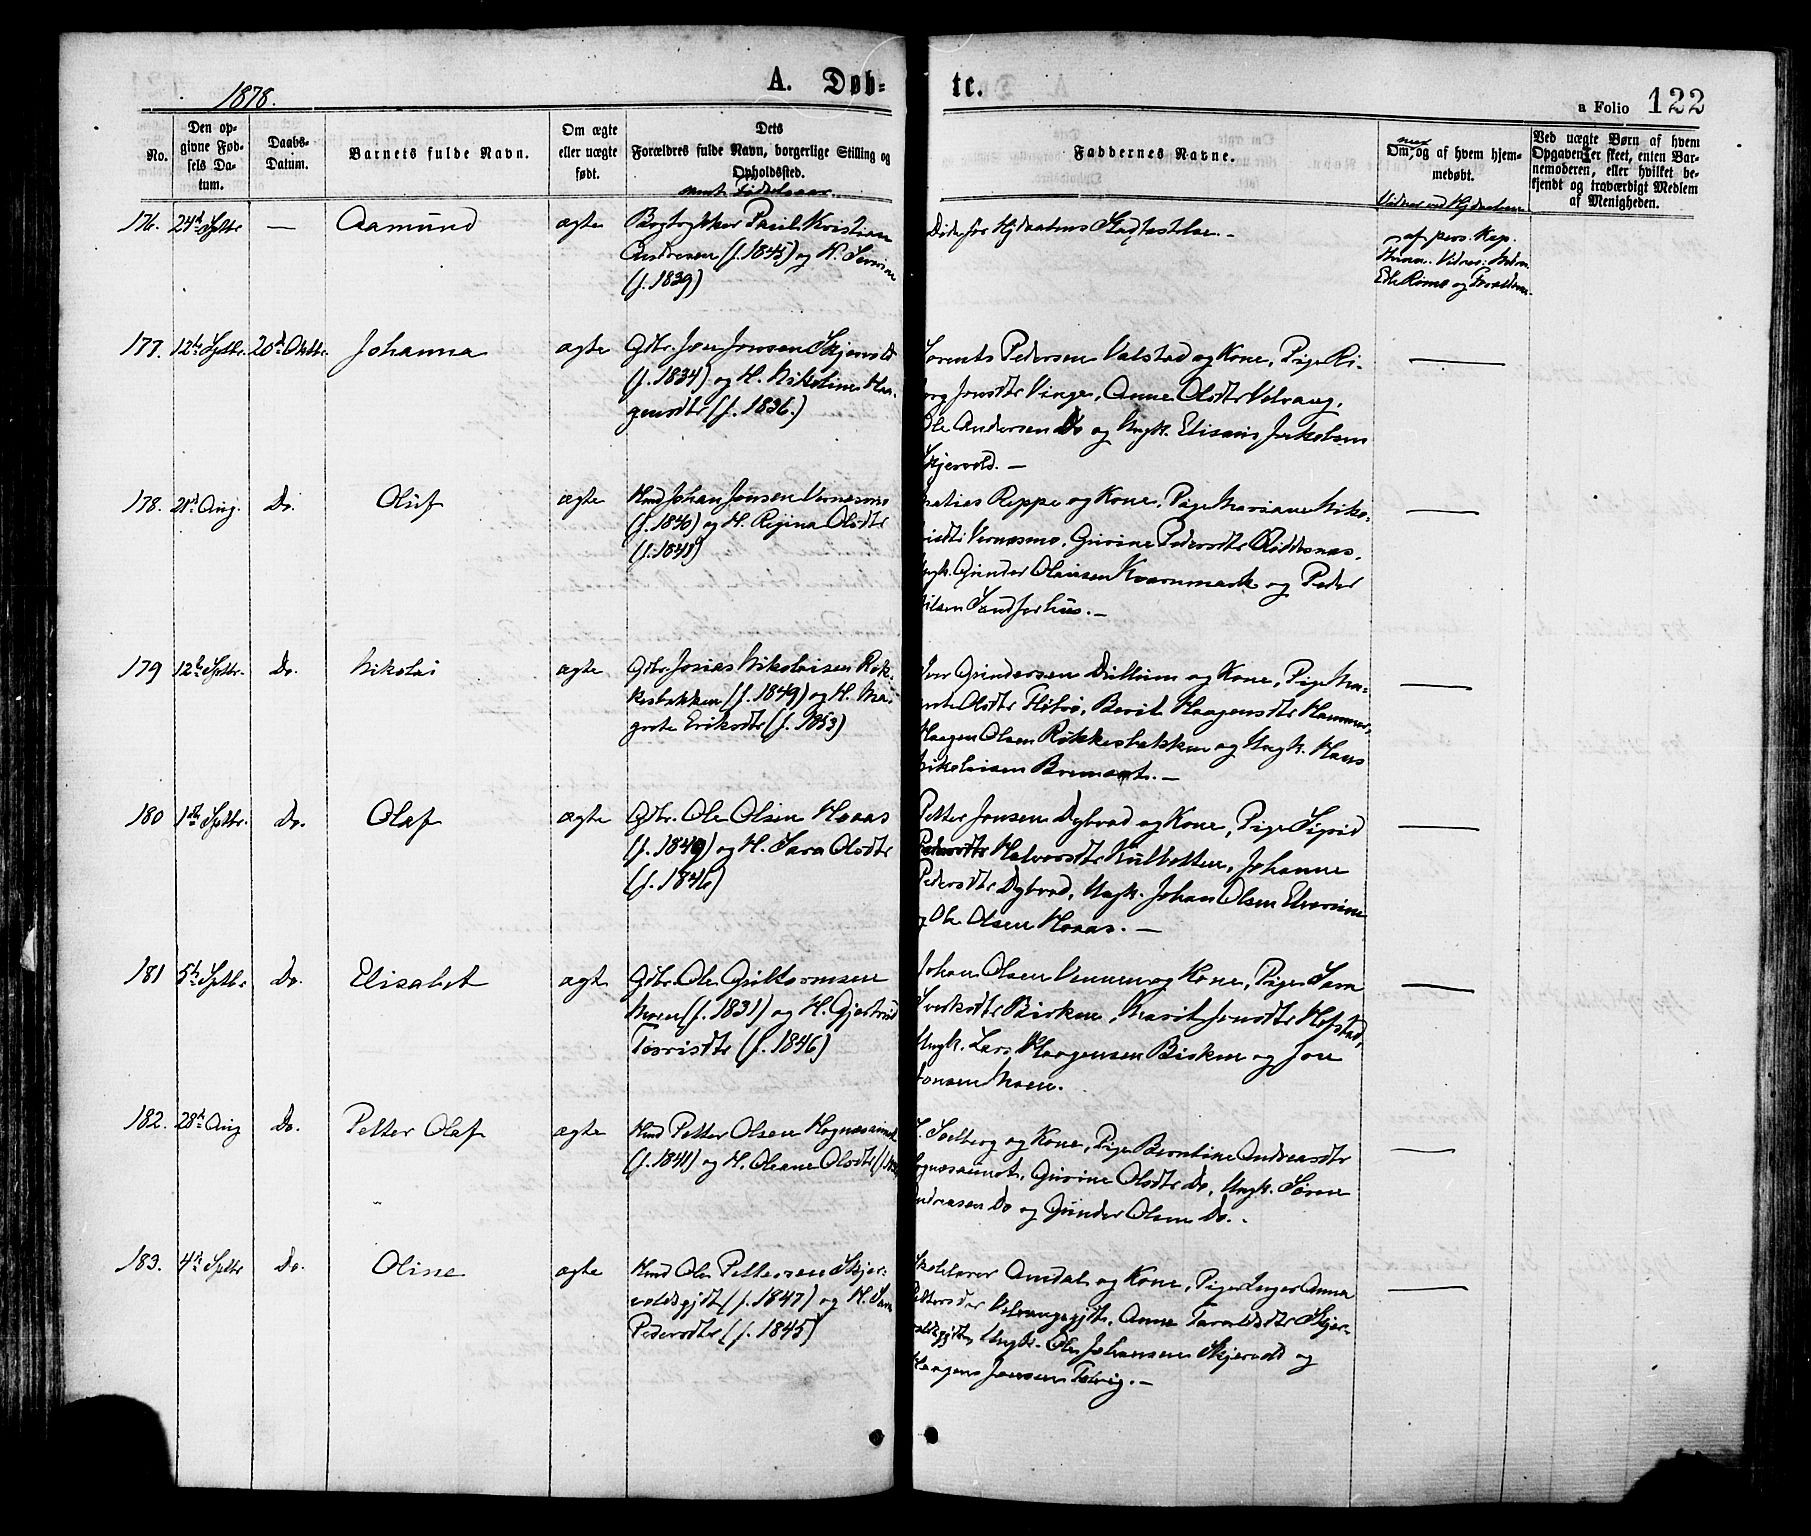 1878.
A. Døb-
te.
a Folio 122
No.
Den op-
givne Fød-
sels Da-
tum.
Daabs-
Datum.
Barnets fulde Navn.
Om ægte
eller uægte
født.
Dets
Forældres fulde Navn, borgerlige Stilling og
Opholdssted.
samt Fødselsaar.
Faddernes Navne.
Om, og af hvem hjem-
medøbt.
Vidner ved Hjdaaben
Ved uægte Børn af hvem
Opgaven er skeet, enten Bar-
nemoderen, eller hvilket be-
kjendt og troværdigt Medlem
af Menigheden.
176. 24de Sptbr — Aamund ægte
Bogtrykker Paul Kristian
Andresen (f. 1845) og H. Severine
(f. 1839)
Døde før Hjdaabens Stadfæstelse. —
af pers. Kap.
Edle Rømo og Forældrene.
177. 12te Sptbr. 20de Oktbr. Johanna ægte
Gdbr. Jon Jonsen Skjervold
(f. 1834) og H. Nikoline Haa-
gensdtr (f. 1836.)
Lorents Pedersen Valstad og Kone, Pige Ri-
borg Jonsdtr Vinge, Anne Olsdtr Velvang,
Ole Andersen Do og Ungk. Elisæus Jakobsen
Skjervold. —
178. 21de Aug. Do. Oluf ægte
Hmd Johan Jonsen Vernesmo
(f. 1840) og H. Regina Olsdtr
(f. 1841)
Matias Reppe og Kone, Pige Mariane Niko-
laisdtr Vernæsmo, Gurine Pedersdtr Øiddesnæs,
Ungk. Gunder Olausen Kvarnmark og Peder
Nilsen Sandferhus. —
179 12te Sptbr. Do. Nikolai ægte
Gdbr. Josias Nikolaisen Røk-
kesbakken (f. 1849) og H. Mar-
grete Eriksdtr (f. 1853)
Iver Gundersen Dullum og Kone, Pige Ma-
rit Olsdtr Flibo, Berit Haagensdtr Hammer,
Haagen Olsen Røkkesbakken og Ungk. Hans
Nikolaisen Bremset. —
180 1ste Sptbr. Do. Olaf ægte
Gdbr. Ole Olsen Haaas
(f. 1849) og H. Sara Olsdtr
(f. 1846)
Petter Jonsen Dybvad og Kone, Pige Sigrid
Halvorsdtr Kulbotten, Johanne
Pedersdtr Dybvad, Ungk. Johan Olsen Elverium
og Ole Olsen Haaas. —
181 5te Sptbr. Do. Elisabet ægte
Gdbr. Ole Guttormsen
Moen (f. 1831) og H. Gjertrud
Torrisdtr (f. 1846)
Johan Olsen Vennen og Kone, Pige Sara
Sverkesdtr Birken, Marit Jonsdtr Hofstad,
Ungk. Lars Haagensen Birken og Jon
Jonsen Moen.
182. 28de Aug Do. Petter Olaf ægte
Hmd Petter Olsen Hognæsaunet
(f. 1841) og H. Oleane Olsdtr
Solberg og Kone, Pige Berntine Andreasdtr
Hognæsaunet, Gurine Olsdtr Do, Ungk. Søren
Andreasen Do og Gunder Olsen Do. .
183. 4de Sptbr Do. Oline ægte
Hmd Ole Pettersen Skjer-
voldsgjdt (f. 1847) og H. Sara
Pedersdtr (f. 1845)
Skolelærer Amdal og Kone, Pige Inger Anna
Pettersdtr Velvangsgjdt, Anne Taraldsdtr Skjer-
voldsgjdt, Ungk. Ole Johansen Skjervold og
Haagens Jonsen Tølvig. —